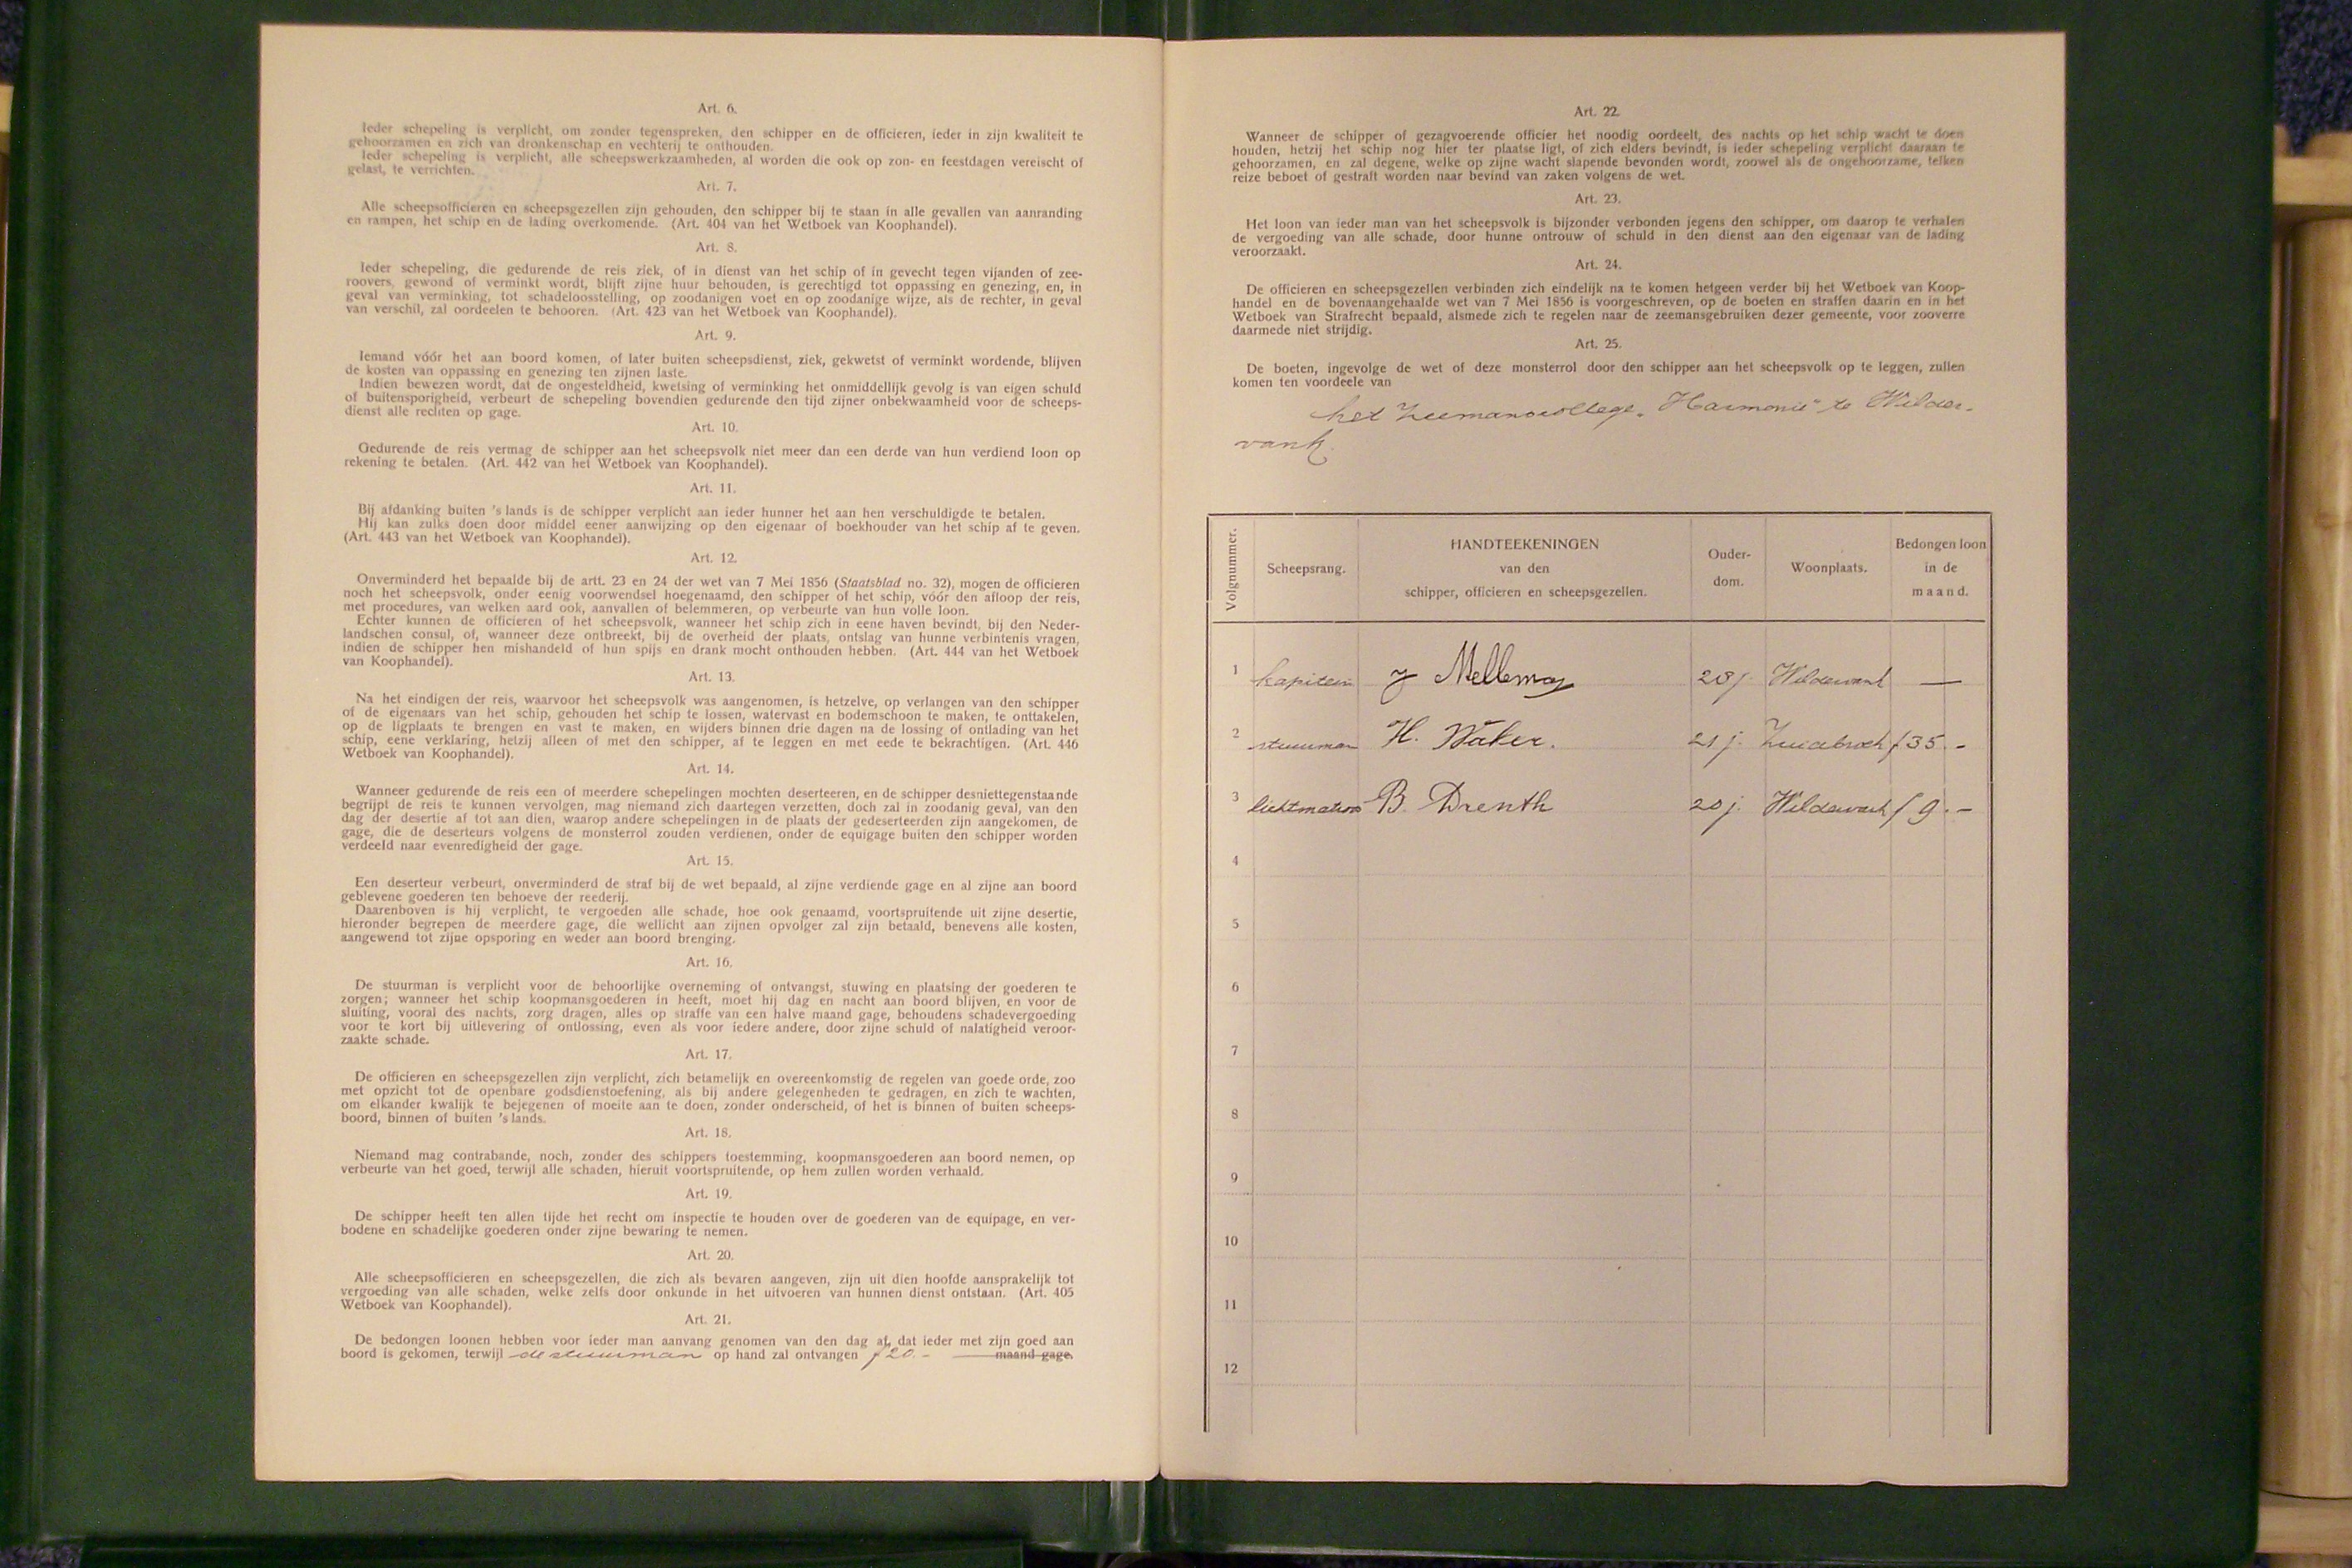 Art. 6.
Ieder schepeling is verplicht, om zonder tegenspreken, den schipper en de officieren, ieder in zijn kwaliteit te
gehoorzamen en zich van dronkenschap en vechterij te onthouden.
Ieder schepeling is verplicht, alle scheepswerkzaamheden, al worden die ook op zon- en feestdagen vereischt of
gelast, te verrichten.
Art. 7.
Alle scheepsofficieren en scheepsgezellen zijn gehouden, den schipper bij te staan in alle gevallen van aanranding
en rampen, het schip en de lading overkomende. (Art. 404 van het Wetboek van Koophandel).
Art. 8.
Ieder schepeling, die gedurende de reis ziek, of in dienst van het schip of in gevecht tegen vijanden of zee-
roovers, gewond of verminkt wordt, blijft zijne huur behouden, is gerechtigd tot oppassing en genezing, en, in
geval van verminking, tot schadeloosstelling, op zoodanigen voet en op zoodanige wijze, als de rechter, in geval
van verschil, zal oordeelen te behooren. (Art. 423 van het Wetboek van Koophandel).
Art. 9.
Iemand vóór het aan boord komen, of later buiten scheepsdienst, ziek, gekwetst of verminkt wordende, blijven
de kosten van oppassing en genezing ten zijnen laste.
Indien bewezen wordt, dat de ongesteldheid, kwetsing of verminking het onmiddellijk gevolg is van eigen schuld
of buitensporigheid, verbeurt de schepeling bovendien gedurende den tijd zijner onbekwaamheid voor de scheeps-
dienst alle rechten op gage.
Art. 10.
Gedurende de reis vermag de schipper aan het scheepsvolk niet meer dan een derde van hun verdiend loon op
rekening te betalen. (Art. 442 van het Wetboek van Koophandel).
Art. 11.
Bij afdanking buiten 's lands is de schipper verplicht aan ieder hunner het aan hen verschuldigde te betalen.
Hij kan zulks doen door middel eener aanwijzing op den eigenaar of boekhouder van het schip af te geven.
(Art. 443 van het Wetboek van Koophandel).
Art. 12.
Onverminderd het bepaalde bij de artt. 23 en 24 der wet van 7 Mei 1856 (Staatsblad no. 32), mogen de officieren
noch het scheepsvolk, onder eenig voorwendsel hoegenaamd, den schipper of het schip, vóór den afloop der reis,
met procedures, van welken aard ook, aanvallen of belemmeren, op verbeurte van hun volle loon.
Echter kunnen de officieren of het scheepsvolk, wanneer het schip zich in eene haven bevindt, bij den Neder-
landschen consul, of, wanneer deze ontbreekt, bij de overheid der plaats, ontslag van hunne verbintenis vragen,
indien de schipper hen mishandeld of hun spijs en drank mocht onthouden hebben. (Art. 444 van het Wetboek
van Koophandel).
Art. 13.
Na het eindigen der reis, waarvoor het scheepsvolk was aangenomen, is hetzelve, op verlangen van den schipper
of de eigenaars van het schip, gehouden het schip te lossen, watervast en bodemschoon te maken, te onttakelen,
op de ligplaats te brengen en vast te maken, en wijders binnen drie dagen na de lossing of ontlading van het
schip, eene verklaring, hetzij alleen of met den schipper, af te leggen en met eede te bekrachtigen. (Art. 446
Wetboek van Koophandel).
Art. 14.
Wanneer gedurende de reis een of meerdere schepelingen mochten deserteeren, en de schipper desniettegenstaande
begrijpt de reis te kunnen vervolgen, mag niemand zich daartegen verzetten, doch zal in zoodanig geval, van den
dag der desertie af tot aan dien, waarop andere schepelingen in de plaats der gedeserteerden zijn aangekomen, de
gage, die de deserteurs volgens de monsterrol zouden verdienen, onder de equigage buiten den schipper worden
verdeeld naar evenredigheid der gage.
Art. 15.
Een deserteur verbeurt, onverminderd de straf bij de wet bepaald, al zijne verdiende gage en al zijne aan boord
geblevene goederen ten behoeve der reederij.
Daarenboven is hij verplicht, te vergoeden alle schade, hoe ook genaamd, voortspruitende uit zijne desertie,
hieronder begrepen de meerdere gage, die wellicht aan zijnen opvolger zal zijn betaald, benevens alle kosten,
aangewend tot zijne opsporing en weder aan boord brenging.
Art. 16.
De stuurman is verplicht voor de behoorlijke overneming of ontvangst, stuwing en plaatsing der goederen te
zorgen; wanneer het schip koopmansgoederen in heeft, moet hij dag en nacht aan boord blijven, en voor de
sluiting, vooral des nachts, zorg dragen, alles op straffe van een halve maand gage, behoudens schadevergoeding
voor te kort bij uitlevering of ontlossing, even als voor iedere andere, door zijne schuld of nalatigheid veroor-
zaakte schade.
Art. 17.
De officieren en scheepsgezellen zijn verplicht, zich betamelijk en overeenkomstig de regelen van goede orde, zoo
met opzicht tot de openbare godsdienstoefening, als bij andere gelegenheden te gedragen, en zich te wachten,
om elkander kwalijk te bejegenen of moeite aan te doen, zonder onderscheid, of het is binnen of buiten scheeps-
boord, binnen of buiten 's lands.
Art. 18.
Niemand mag contrabande, noch, zonder des schippers toestemming, koopmansgoederen aan boord nemen, op
verbeurte van het goed, terwijl alle schaden, hieruit voortspruitende, op hem zullen worden verhaald.
Art. 19.
De schipper heeft ten allen tijde het recht om inspectie te houden over de goederen van de equipage, en ver-
bodene en schadelijke goederen onder zijne bewaring te nemen.
Art. 20.
Alle scheepsofficieren en scheepsgezellen, die zich als bevaren aangeven, zijn uit dien hoofde aansprakelijk tot
vergoeding van alle schaden, welke zelfs door onkunde in het uitvoeren van hunnen dienst ontstaan. (Art. 405
Wetboek van Koophandel).
Art. 21.
De bedongen loonen hebben voor ieder man aanvang genomen van den dag af, dat ieder met zijn goed aan
boord is gekomen, terwijl de stuurman op hand zal ontvangen f 20.- maand gage.
Art. 22.
Wanneer de schipper of gezagvoerende officier het noodig oordeelt, des nachts op het schip wacht te doen
houden, hetzij het schip nog hier ter plaatse ligt, of zich elders bevindt, is ieder schepeling verplicht daaraan te
gehoorzamen, en zal degene, welke op zijne wacht slapende bevonden wordt, zoowel als de ongehoorzame, telken
reize beboet of gestraft worden naar bevind van zaken volgens de wet.
Art. 23.
Het loon van ieder man van het scheepsvolk is bijzonder verbonden jegens den schipper, om daarop te verhalen
de vergoeding van alle schade, door hunne ontrouw of schuld in den dienst aan den eigenaar van de lading
veroorzaakt.
Art. 24.
De officieren en scheepsgezellen verbinden zich eindelijk na te komen hetgeen verder bij het Wetboek van Koop-
handel en de bovenaangehaalde wet van 7 Mei 1856 is voorgeschreven, op de boeten en straffen daarin en in het
Wetboek van Strafrecht bepaald, alsmede zich te regelen naar de zeemansgebruiken dezer gemeente, voor zooverre
daarmede niet strijdig.
Art. 25.
De boeten, ingevolge de wet of deze monsterrol door den schipper aan het scheepsvolk op te leggen, zullen
komen ten voordeele van
het Zeemanscollege „Harmonie" te Wilder-
vank.
Volgnummer. Scheepsrang. HANDTEEKENINGEN van den schipper, officieren en scheepsgezellen. Ouder-dom. Woonplaats. Bedongen loon in de maand.
1 kapitein J Mellema 28 j. Wildervank —
2 stuurman H. Bakker. 21 j. Zuidbroek f 35.-
3 lichtmatroos B. Drenth 20 j. Wildervank f 9.-
4
5
6
7
8
9
10
11
12